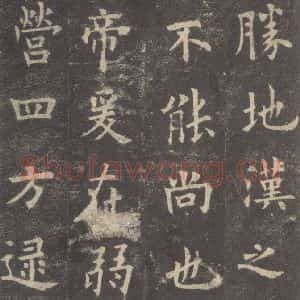 勝地漢之
不能尚也
帝爰在弱
營四方逯
Shufawang.Cn